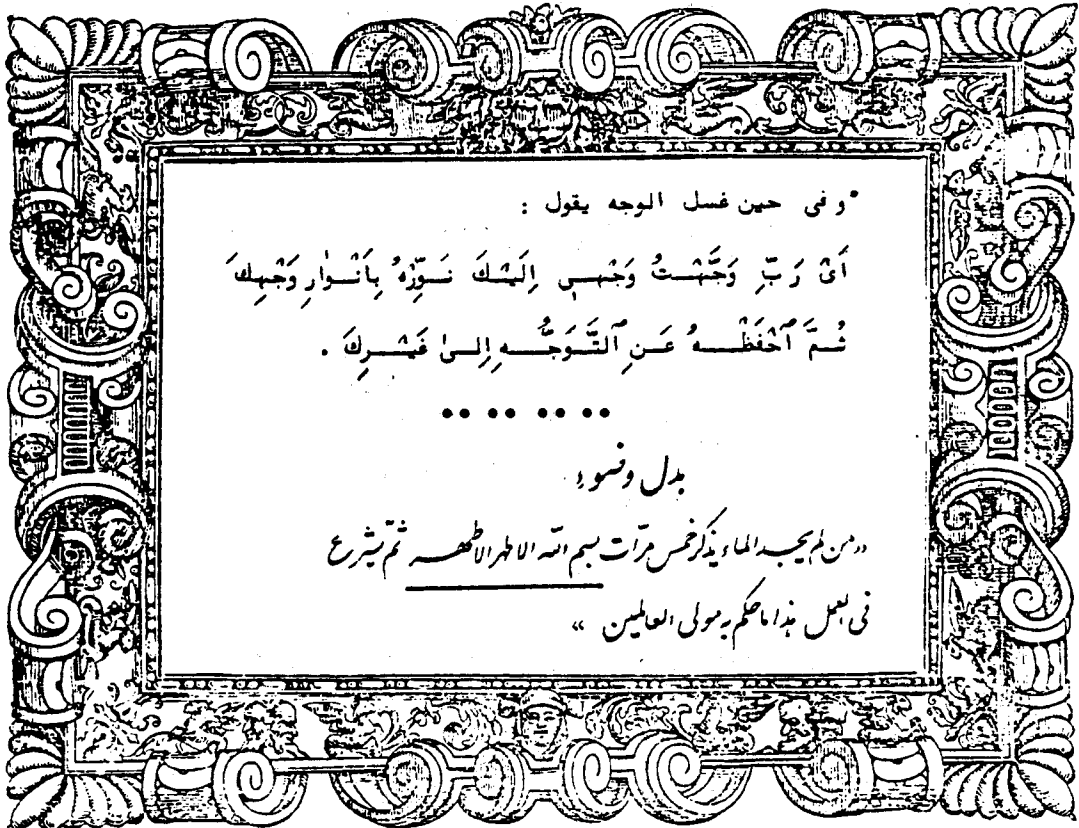 و فى حين غسل الوجه يقول :
اَىْ رَبِّ وَجَّهْتُ وَجْهِى اِلَيْكَ نَوِّرْهُ بِاَنْوارِ وَجْهِكَ
ثُمَّ ٱحْفَظْهُ عَنِ ٱلتَّوَجُّهِ اِلىٰ غَيْرِكَ .
بدل وضو ء
«من لم يجد الماء يذكر خمس مرّات بسم الله الاطهر الاطهر ثمّ يشرع
فى العمل هذا ما حكم به مولى العالمين »